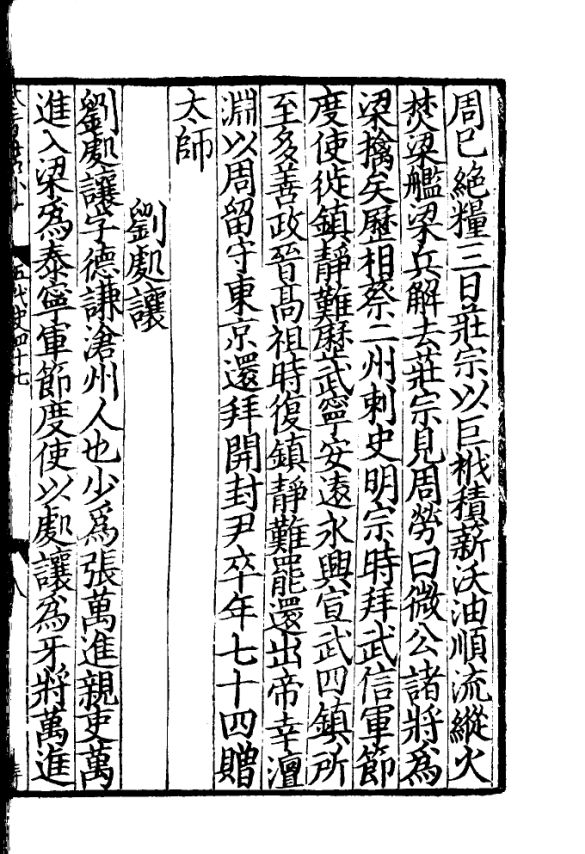 周已絶糧三日莊宗以巨栰積薪沃油順流縱火
焚梁艦梁兵解去莊宗見周勞曰微公諸將為
梁擒矣歷相蔡二州刺史明宗時拜武信軍節
度使徙鎮靜難歷武寧安遠永興宣武四鎮所
至多善政晉髙祖時復鎮靜難罷還出帝幸澶
淵以周留守東京還拜開封尹卒年七十四贈
太師
劉處讓
劉處讓字德謙滄州人也少爲張萬進親吏萬
進入梁爲泰寧軍節度使以處讓爲牙將萬進
五代史四十七
八